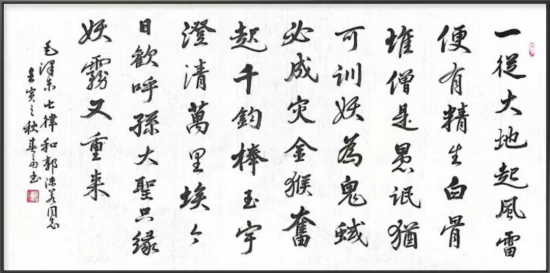 一從大地起風雷
便有精生白骨
堆僧是愚氓猶
可訓妖為鬼蜮
必成灾金猴奮
起千鈞棒玉宇
澄清萬里埃今
日歡呼孫大聖只緣
妖霧又重来
毛澤东七律和郭沫若同志
壬寅之秋